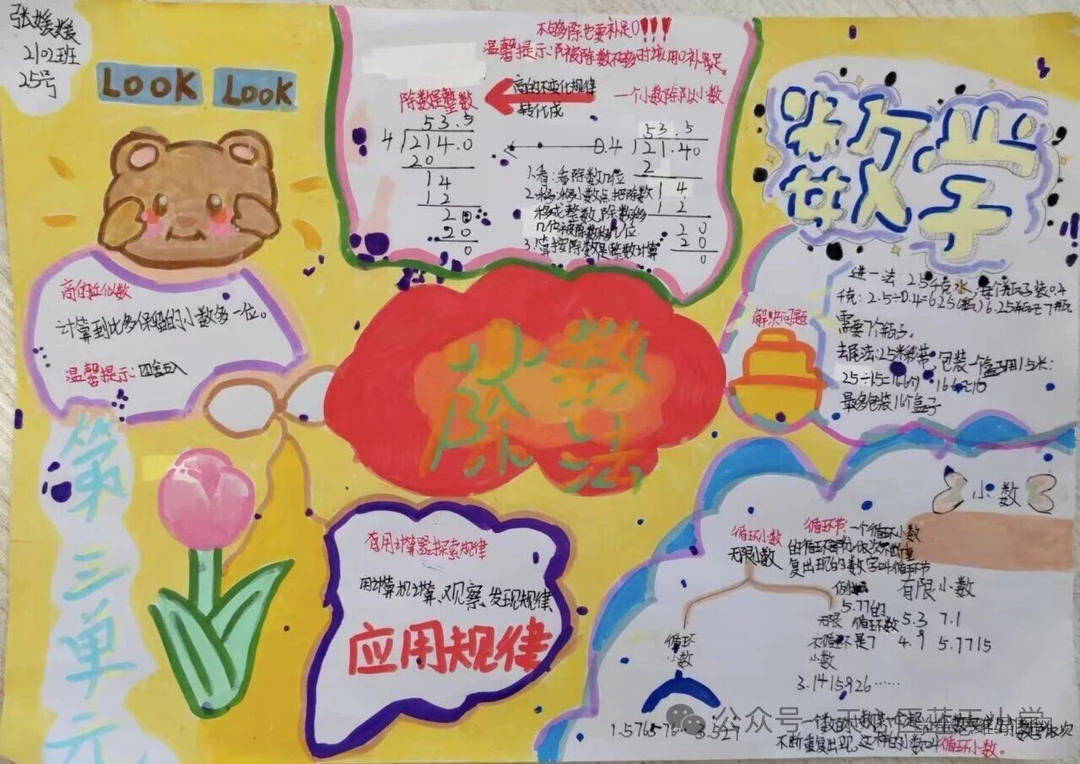 张媛媛
2102班
25号
LOOK LOOK
不够除也要补足0!!!
温馨提示:
除数是整数
商的不变化规律
转化成
一个小数除以小数
53.5
4 214.0
20
14
12
20
20
0
53.5
0.4 21.40
2
14
12
20
20
0
1.看:看除数几位
2.移:移小数点,把除数
移成整数,除数移
几位被除数移几位
3.算:按除数是整数计算
数学
商的近似数
计算到比多保留的小数多一位。
温馨提示:四舍五入
第三单元
小数
除法
解决问题
进一法:2.5千克水,每个瓶子装0.4
千克:2.5÷0.4=6.25
需要7个瓶子。
去尾法:25米丝带,包装一个盒子用1.5米:
最多包装16个盒子
用计算器探索规律
用计算机计算、观察、发现规律
应用规律
小数
循环小数
无限小数
循环节:一个循环小数
的循环部分,依次不断重
复出现的数字叫循环节
5.77的
循环节是7
有限小数
5.3 7.1
4.9 5.7715
循环
小数
无限
不循环
小数
3.1415926……
一个数的小数部分
不断重复出现,这样的小数叫循环小数。
公众号